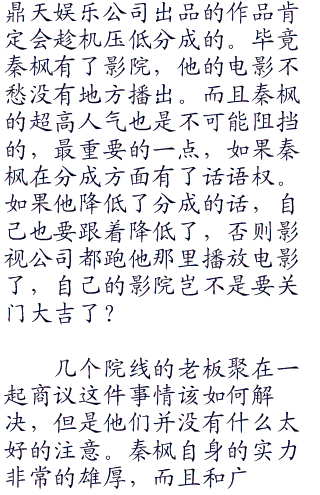 鼎天娱乐公司出品的作品肯
定会趁机压低分成的。毕竟
秦枫有了影院，他的电影不
愁没有地方播出。而且秦枫
的超高人气也是不可能阻挡
的，最重要的一点，如果秦
枫在分成方面有了话语权。
如果他降低了分成的话，自
己也要跟着降低了，否则影
视公司都跑他那里播放电影
了，自己的影院岂不是要关
门大吉了？
几个院线的老板聚在一
起商议这件事情该如何解
决，但是他们并没有什么太
好的注意。秦枫自身的实力
非常的雄厚，而且和广